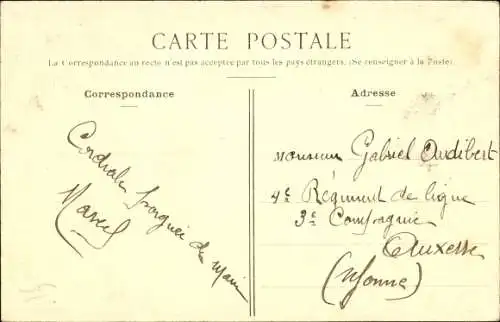 CARTE POSTALE
La Correspondance au recto n'est pas acceptée par tous les pays étrangers. (Se renseigner à la Poste).
Correspondance
Adresse
Cordiale poignée de main
Marcel
Monsieur Gabriel Audibert
4e Régiment de ligne
3e Compagnie
Auxerre
(Yonne)